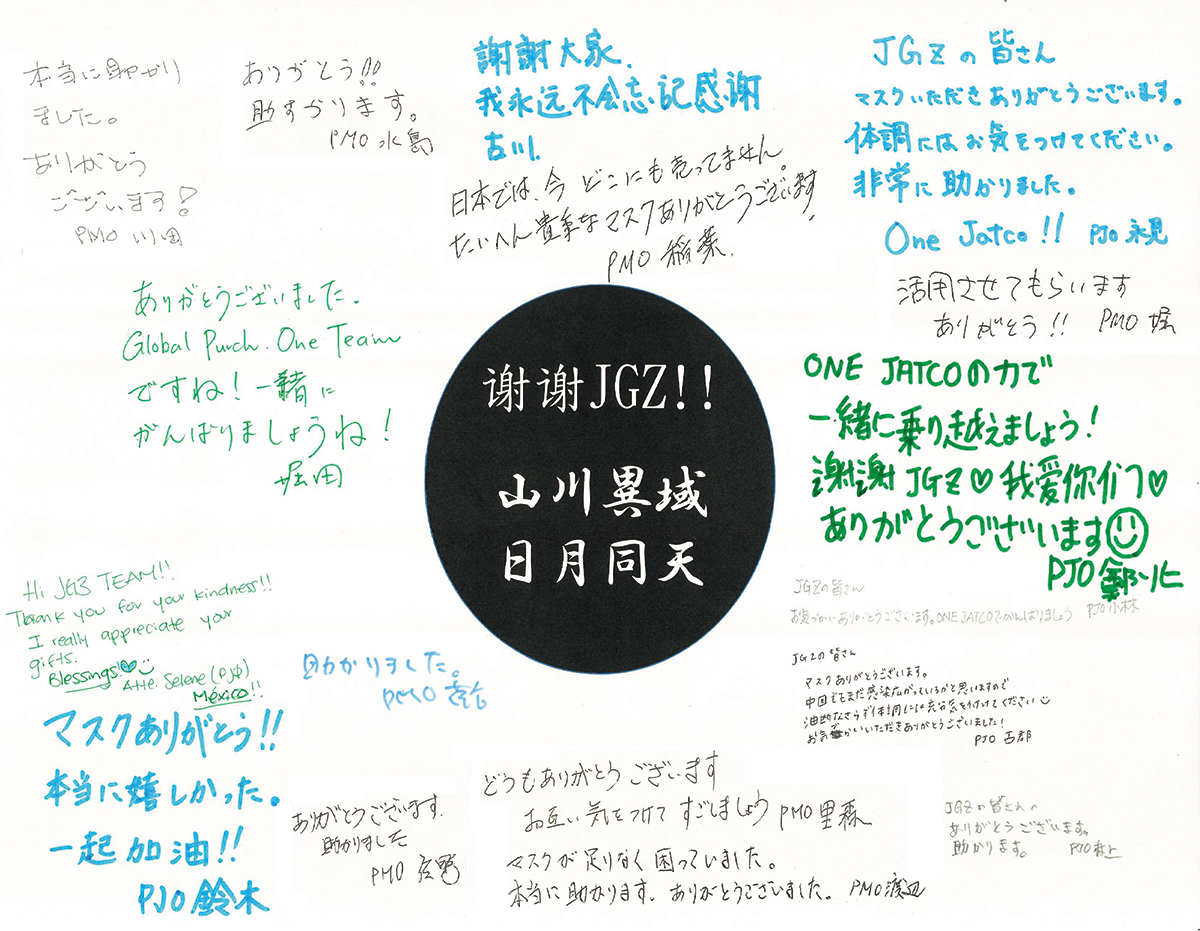 本当に助かり
ました。
ありがとう
ございます!
PMO 川田
ありがとう!!
助すかります。
PMO 水島
謝謝大家.
我永远不会忘记感谢
古川.
日本では、今 どこにも売ってません。
たいへん貴重なマスクありがとうございます!
PMO 稲葉.
JGZの皆さん
マスクいただきありがとうございます。
体調にはお気をつけてください。
非常に助かりました。
One Jatco!! PJO 永見
活用させてもらいます
ありがとう!! PMO 堀
ありがとうございました.
Global Purch. One Team
ですね! 一緒に
がんばりましょうね!
堀田
谢谢JGZ!!
山川異域
日月同天
ONE JATCOの力で
一緒に乗り越えましょう!
謝謝 JGZ♡我爱你们♡
ありがとうございます☺
PJO
Hi JGZ TEAM!!
Thank you for your kindness!!
I really appreciate your
gifts.
Blessings!♥☺
Atte: Selene (PJO)
México!!
助かりました。
PMO
JGZの皆さん
お気づかいありがとうございます。ONE JATCOでがんばりましょう PJO小林
JGZの皆さん
マスクありがとうございます。
中国でもまだ感染広がっているかと思いますので
油断なさらず体調にはお気を付けてください☺
お気づかいいただきありがとうございました!
PJO 古郡
マスクありがとう!!
本当に嬉しかった。
一起加油!!
PJO鈴木
ありがとうございます.
助かりました
PMO
どうもありがとうございます
お互い気をつけて すごしましょう PMO里森
マスクが足りなく困っていました。
本当に助かります. ありがとうございました。 PMO渡辺
JGZの皆さんへ
ありがとうございます。
助かります。 PJO村上